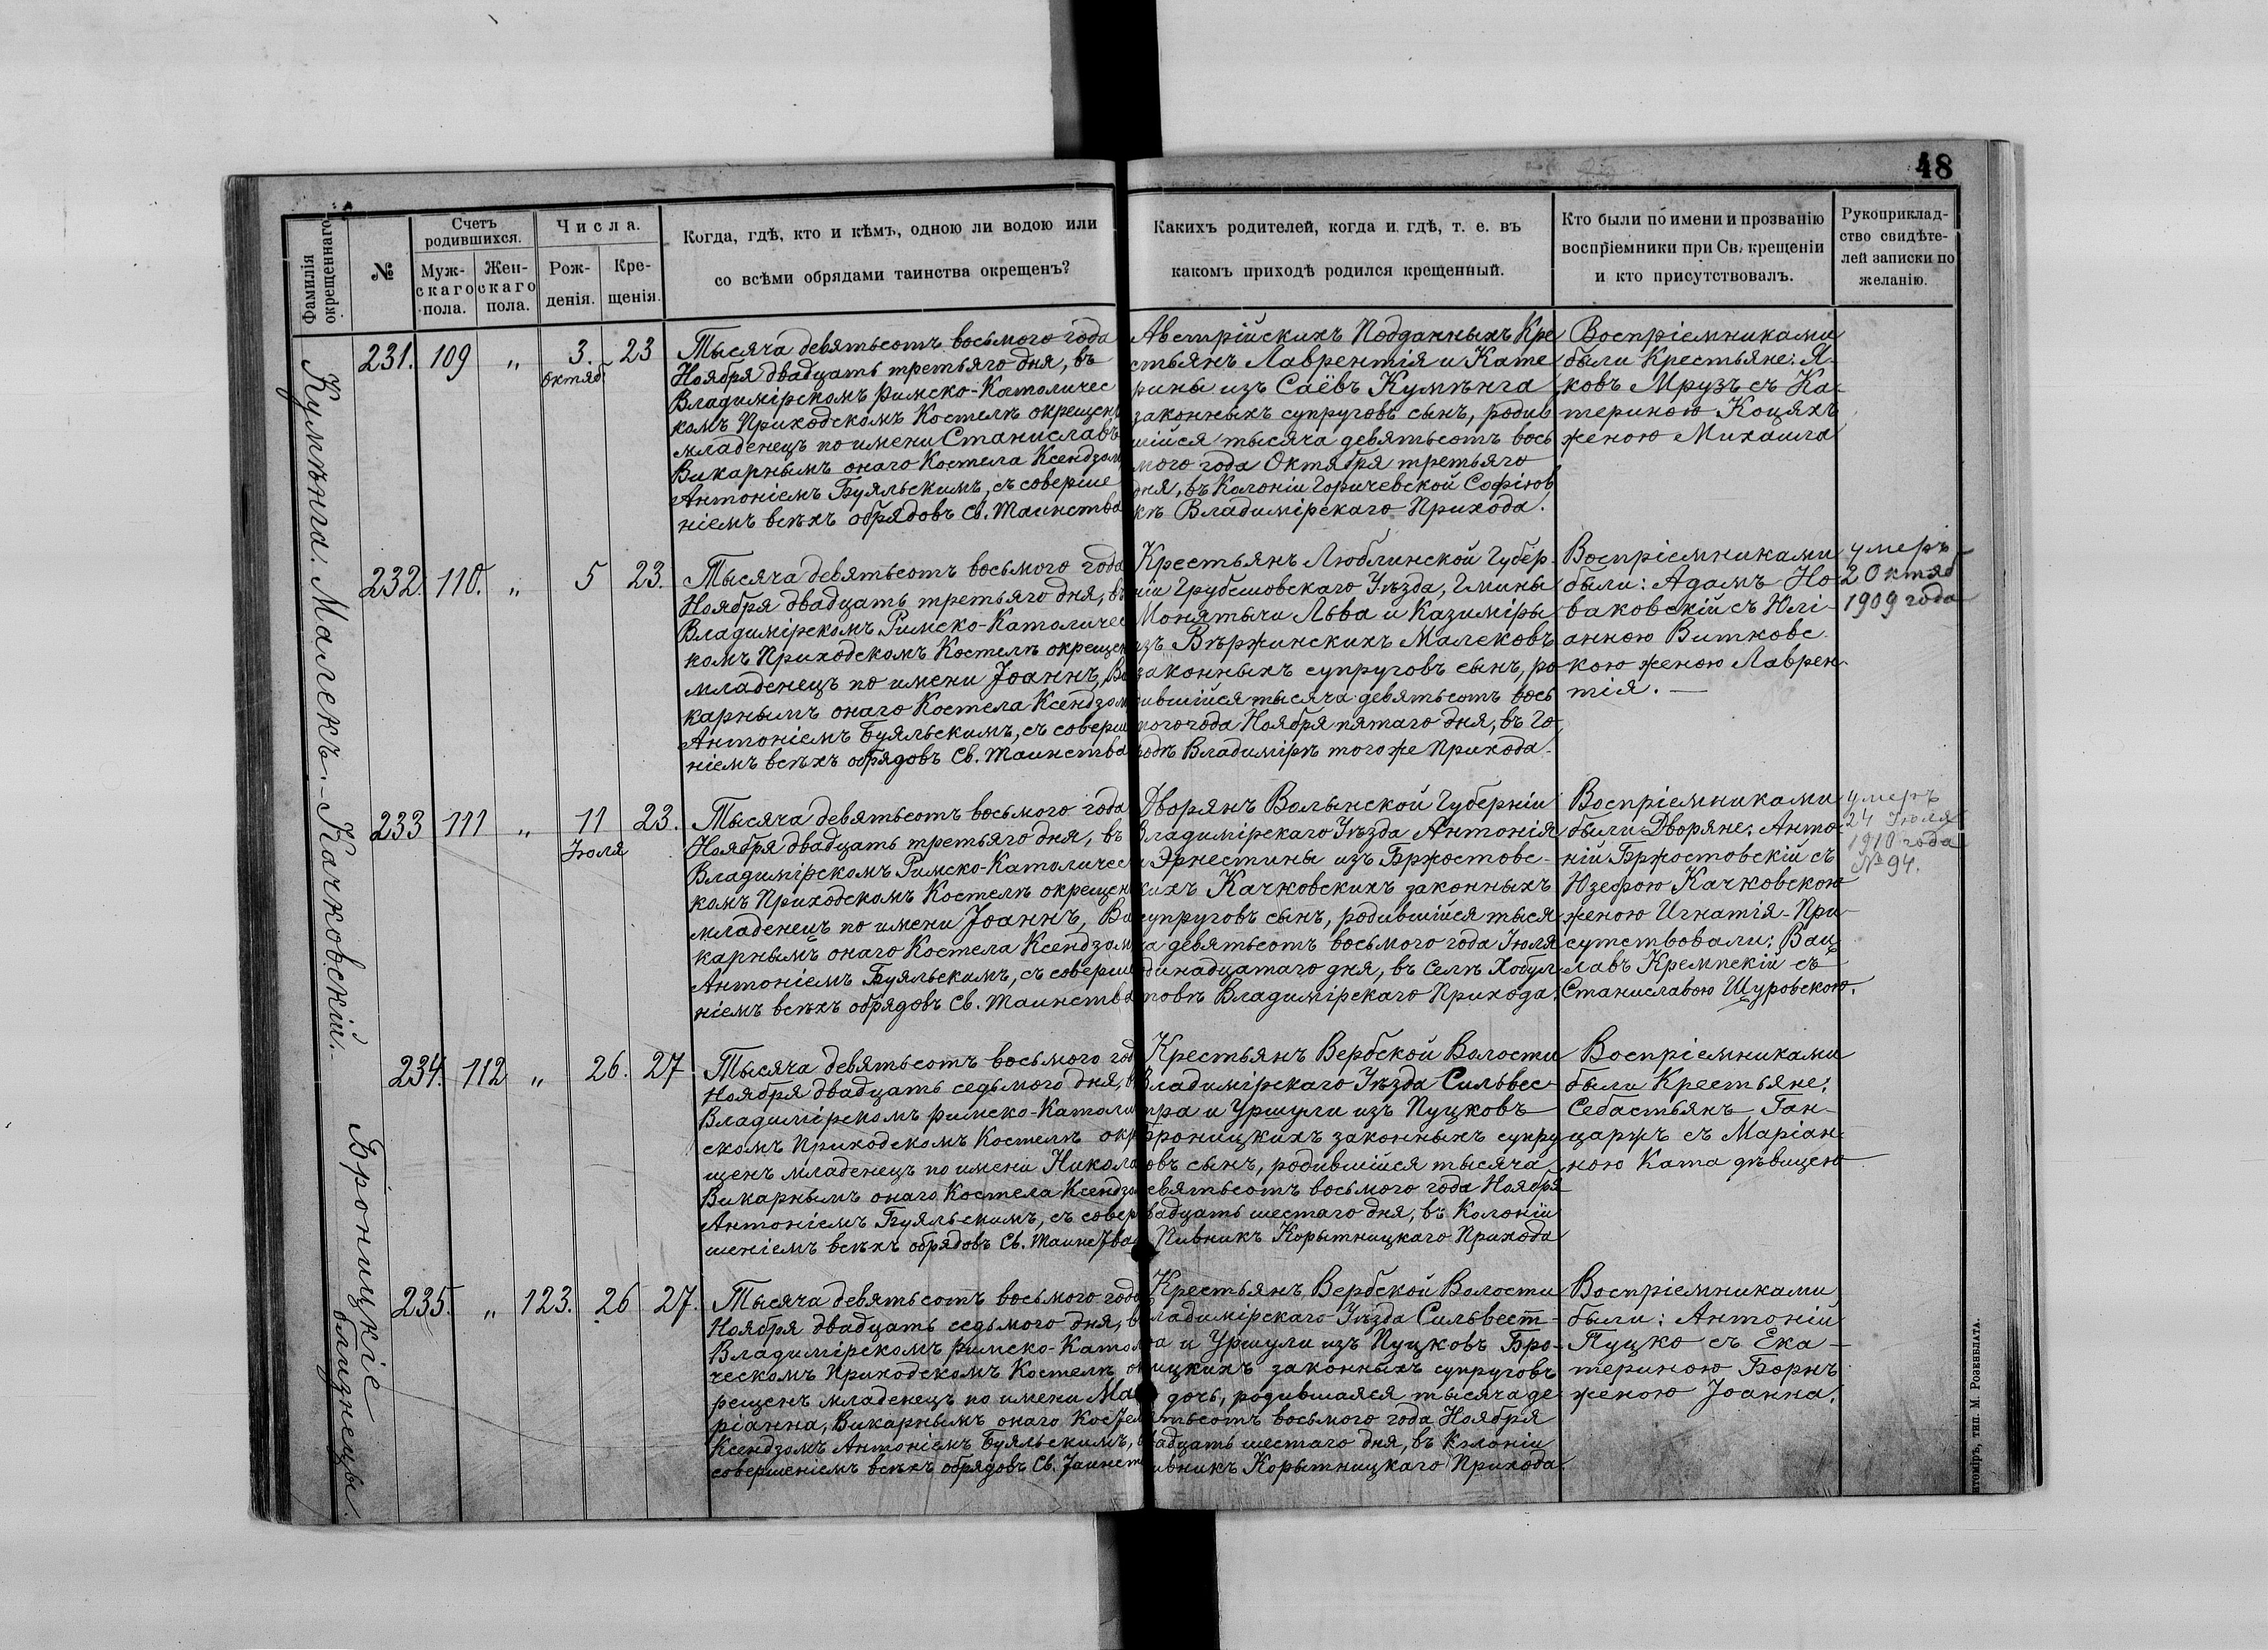 48
Фамилія окрещеннаго.
№
Счетъ родившихся.
Муж-скаго пола.
Жен-скаго пола.
Числа.
Рож-денія.
Кре-щенія.
Когда, гдѣ, кто и кѣмъ, одною ли водою или
со всѣми обрядами таинства окрещенъ?
Какихъ родителей, когда и гдѣ, т. е. въ
какомъ приходѣ родился крещенный.
Кто были по имени и прозванію
воспріемники при Св. крещеніи
и кто присутствовалъ.
Рукоприклад-
ство свидѣте-
лей записки по
желанію.
Кумѣнга.
231. 109 „ 3. Октяб. 23
Тысяча девятьсотъ восьмого года
Ноября двадцать третьяго дня, въ
Владимірскомъ Римско-Католичес
комъ Приходскомъ Костелѣ окрещенъ
младенецъ по имени Станиславъ
Викарнымъ онаго Костела Ксендзомъ
Антоніемъ Буяльскимъ, съ соверше
ніемъ всѣхъ обрядовъ Св. Таинства
Австрійскихъ Подданныхъ Кре
стьянъ Лаврентія и Кате
рины изъ Саёвъ Кумѣнга
законныхъ супруговъ сынъ, родив
шійся тысяча девятьсотъ вось
мого года Октября третьяго
дня, въ Колоніи Горичевской Софіюв
кѣ Владимірскаго Прихода.
Воспріемниками
были Крестьяне: Я-
ковъ Мрузъ съ Ка-
териною Коцяхъ
женою Михаила
Малекъ.
232. 110. „ 5 23.
Тысяча девятьсотъ восьмого года
Ноября двадцать третьяго дня, въ
Владимірскомъ Римско-Католичес
комъ Приходскомъ Костелѣ окрещен
младенецъ по имени Іоаннъ, Ви
карнымъ онаго Костела Ксендзом
Антоніемъ Буяльскимъ, съ соверше
ніемъ всѣхъ обрядовъ Св. Таинства
Крестьянъ Люблинской Губер-
ніи Грубешовскаго Уѣзда, Гмины
Монятычи Льва и Казиміры
изъ Вѣржинскихъ Малековъ
законныхъ супруговъ сынъ, ро
дившійся тысяча девятьсотъ вось
мого года Ноября пятаго дня, въ Го-
родѣ Владимірѣ того же Прихода.
Воспріемниками
были: Адамъ Но-
ваковскій съ Юлі-
анною Витковс-
кою женою Лаврен-
тія. —
умеръ
2 Октяб
1909 года
Качковскій.
233 111 „ 11 Іюля 23.
Тысяча девятьсотъ восьмого года
Ноября двадцать третьяго дня, въ
Владимірскомъ Римско-Католичес
комъ Приходскомъ Костелѣ окрещен
младенецъ по имени Іоаннъ, Ви
карнымъ онаго Костела Ксендзом
Антоніемъ Буяльскимъ, съ соверше
ніемъ всѣхъ обрядовъ Св. Таинства
Дворянъ Волынской Губерніи
Владимірскаго Уѣзда Антонія
и Эрнестины изъ Бржостовс-
кихъ Качковскихъ законныхъ
супруговъ сынъ, родившійся тыся
ча девятьсотъ восьмого года Іюля
одинадцатаго дня, въ Селѣ Хобул-
товѣ Владимірскаго Прихода.
Воспріемниками
были Дворяне: Анто-
ній Бржостовскій съ
Юзефою Качковскою
женою Игнатія - При-
сутствовали: Вац-
лавъ Кремпскій съ
Станиславою Щуровскою.
умеръ
24 Іюля
1910 года
№ 94.
Броницкіе близнецы.
234. 112 „ 26. 27
Тысяча девятьсотъ восьмого год
Ноября двадцать седьмого дня, в
Владимірскомъ Римско-Католич
скомъ Приходскомъ Костелѣ окр
щенъ младенецъ по имени Никола
Викарнымъ онаго Костела Ксендзо
Антоніемъ Буяльскимъ, съ совер
шеніемъ всѣхъ обрядовъ Св. Таинства
Крестьянъ Вербской Волости
Владимірскаго Уѣзда Сильвес-
тра и Уршули изъ Пуцковъ
Броницкихъ законныхъ супру
овъ сынъ, родившійся тысяча
евятьсотъ восьмого года Ноября
вадцать шестаго дня, въ Колоніи
Пивникъ Корытницкаго Прихода
Воспріемниками
были Крестьяне:
Себастьянъ Ган-
царжъ съ Маріан-
ною Ката дѣвицею
235. „ 123. 26 27.
Тысяча девятьсотъ восьмого года
Ноября двадцать седьмого дня, в
Владимірскомъ Римско-Катол
ческомъ Приходскомъ Костелѣ ок
рещенъ младенецъ по имени Ма
ріанна, Викарнымъ онаго Костел
Ксендзомъ Антоніемъ Буяльскимъ, с
совершеніемъ всѣхъ обрядовъ Св. Таинст
Крестьянъ Вербской Волости
Владимірскаго Уѣзда Сильвест-
ра и Уршули изъ Пуцковъ Бро-
ницкихъ законныхъ супруговъ
дочь, родившаяся тысяча де
вятьсотъ восьмого года Ноября
вадцать шестаго дня, въ Колоніи
ивникъ Корытницкаго Прихода.
Воспріемниками
были: Антоній
Пуцко съ Ека-
териною Борнъ
женою Іоанна.
итоміръ, тип. М. Розенблата.